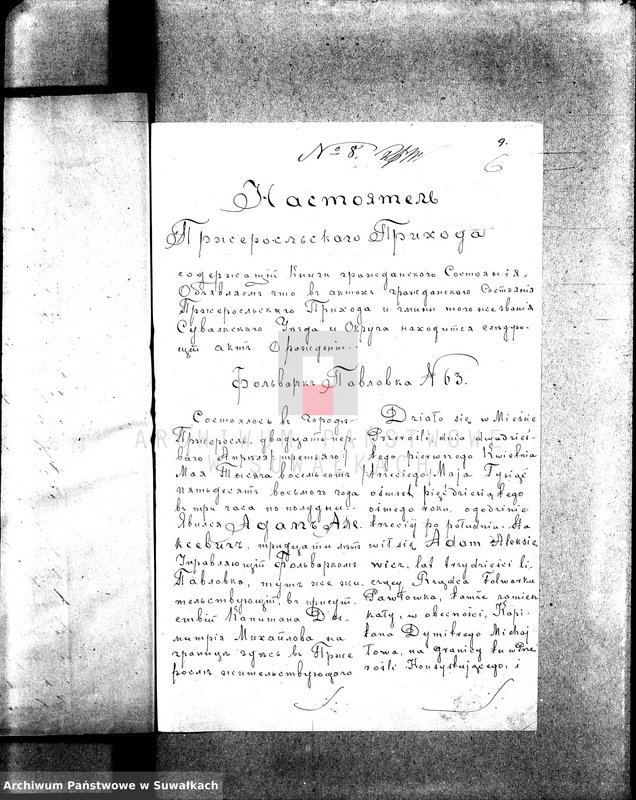 № 8.
9.
6
Настоятель
Пржеросльскаго Прихода
содержащій Книги гражданскаго Состоянія,
Объявляетъ что въ актахъ гражданскаго Состоянія
Пржеросльскаго Прихода и гмины того же званія
Сувалкскаго Уѣзда и Округа находится слѣдую-
щій актъ О рожденіи.
Фольваркъ Павловка № 63.
Состоялось въ Городѣ
Пржеросль, двадцать пер
ваго Апрѣля /третьяго/
Мая Тысяча восемьсотъ
пятьдесятъ восьмого года
въ три часа по полудни.
Явился Адамъ Але
ксевичъ, тридцати лѣтъ
Управляющій Фольваркомъ
Павловка, тутъ же жи
тельствующій, въ присут
ствіи Капитана Ды
митрія Михайлова, на
границѣ здѣсь въ Прже
рослѣ жительствующого
Działo się w Mieście
Przerośli, dnia dwudzies-
tego pierwszego Kwietnia
/trzeciego/ Maja Tysiąc
ośmset pięćdziesiątego
ósmego roku, o godzinie
trzeciéj po południu. Sta
wił się Adam Aleksie
wicz, lat trzydzieści li-
czący Rządca Folwarku
Pawłowka, tamże zamiesz
kały, w obecności, Kapi-
tana Dymitrego Michaj
łowa, na granicy tu w Prze
rośli Konsystującego, i
ARCHIWUM PAŃSTWOWE
W SUWAŁKACH
Archiwum Państwowe w Suwałkach